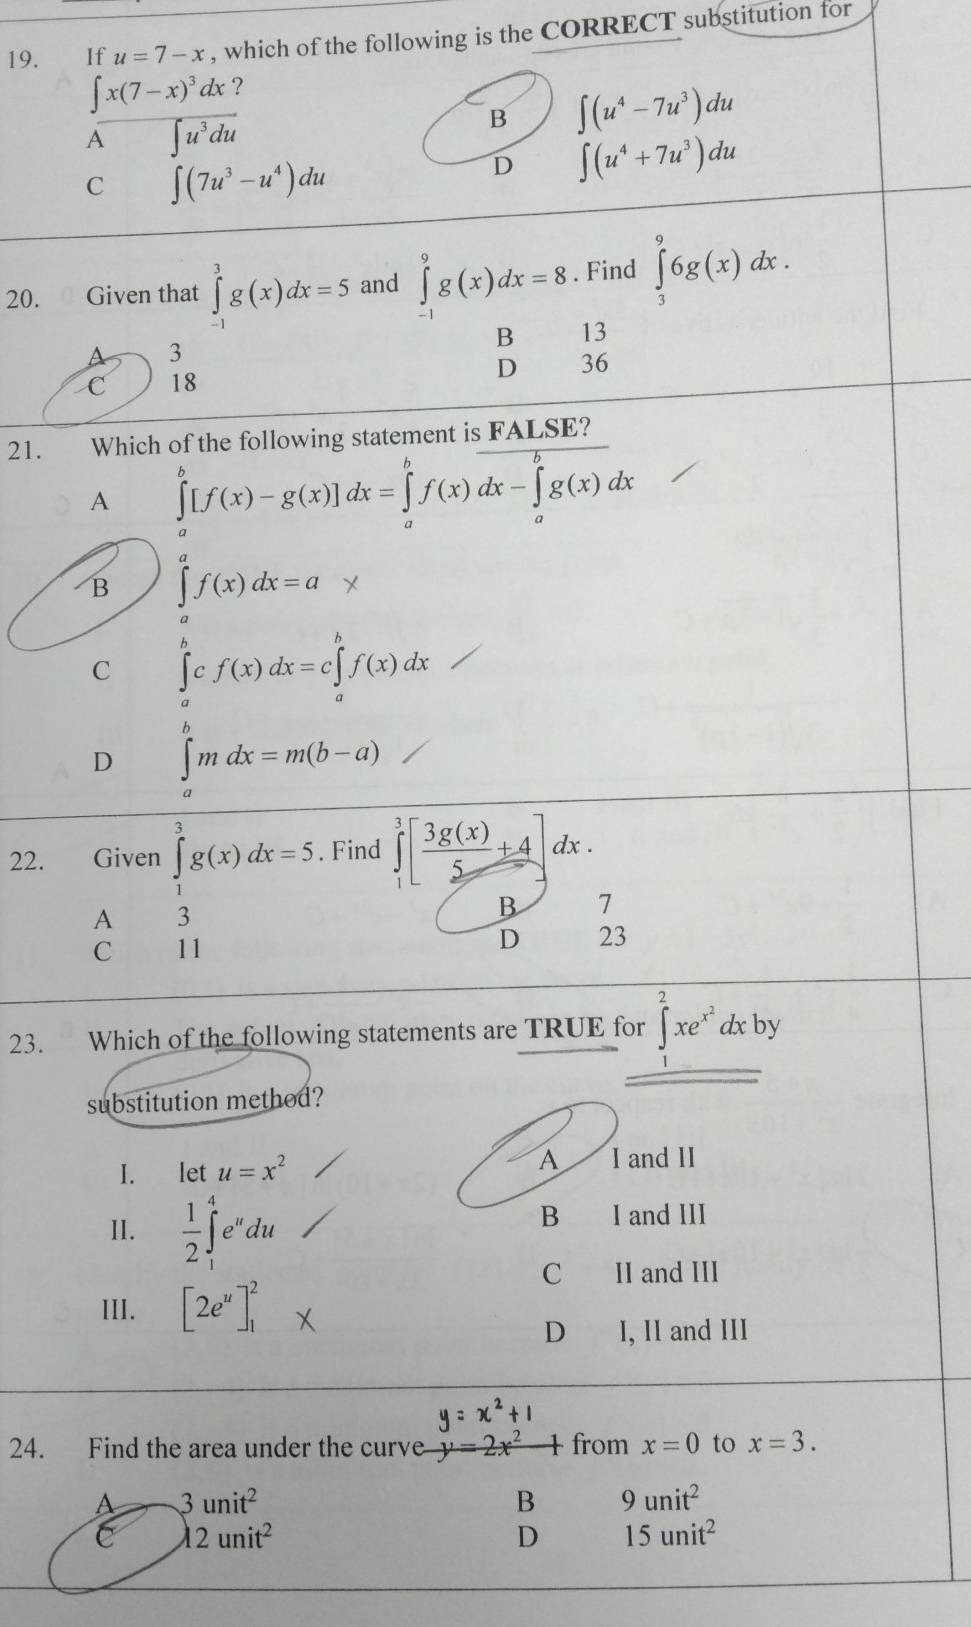 19. If u = 7 − x , which of the following is the CORRECT substitution for
∫ x(7 − x)³ dx ?
A ∫ u³ du
B ∫ (u⁴ − 7u³) du
C ∫ (7u³ − u⁴) du
D ∫ (u⁴ + 7u³) du
20. Given that ∫₋₁³ g(x) dx = 5 and ∫₋₁⁹ g(x) dx = 8 . Find ∫₃⁹ 6g(x) dx .
A 3
B 13
C 18
D 36
21. Which of the following statement is FALSE?
A ∫ₐᵇ [f(x) − g(x)] dx = ∫ₐᵇ f(x) dx − ∫ₐᵇ g(x) dx
B ∫ₐᵃ f(x) dx = a
C ∫ₐᵇ c f(x) dx = c ∫ₐᵇ f(x) dx
D ∫ₐᵇ m dx = m(b − a)
22. Given ∫₁³ g(x) dx = 5 . Find ∫₁³ [3g(x)/5 + 4] dx .
A 3
B 7
C 11
D 23
23. Which of the following statements are TRUE for ∫₁² xe^(x²) dx by
substitution method?
I. let u = x²
II. 1/2 ∫₁⁴ eᵘ du
III. [2eᵘ]₁²
A I and II
B I and III
C II and III
D I, II and III
y = x² + 1
24. Find the area under the curve y = 2x² − 1 from x = 0 to x = 3 .
A 3 unit²
B 9 unit²
C 12 unit²
D 15 unit²